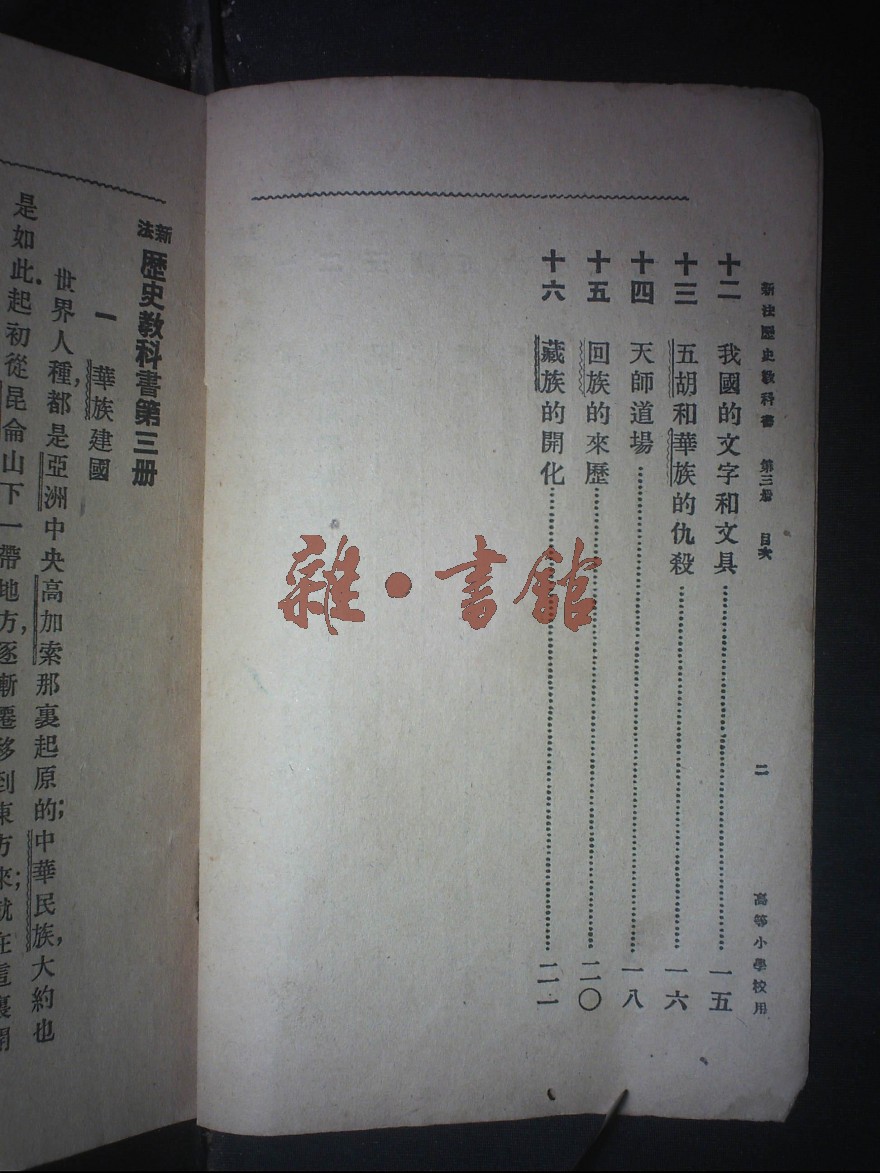 新法歷史教科書 第三册 目次 二 高等小學校用
十二 我國的文字和文具 一五
十三 五胡和華族的仇殺 一六
十四 天師道場 一八
十五 回族的來歷 二〇
十六 藏族的開化 二一
雜·書館
新法歷史教科書第三册
一 華族建國
世界人種，都是亞洲中央高加索那裏起原的；中華民族，大約也
是如此．起初從昆侖山下一帶地方，逐漸遷移到東方來；就在這裏開